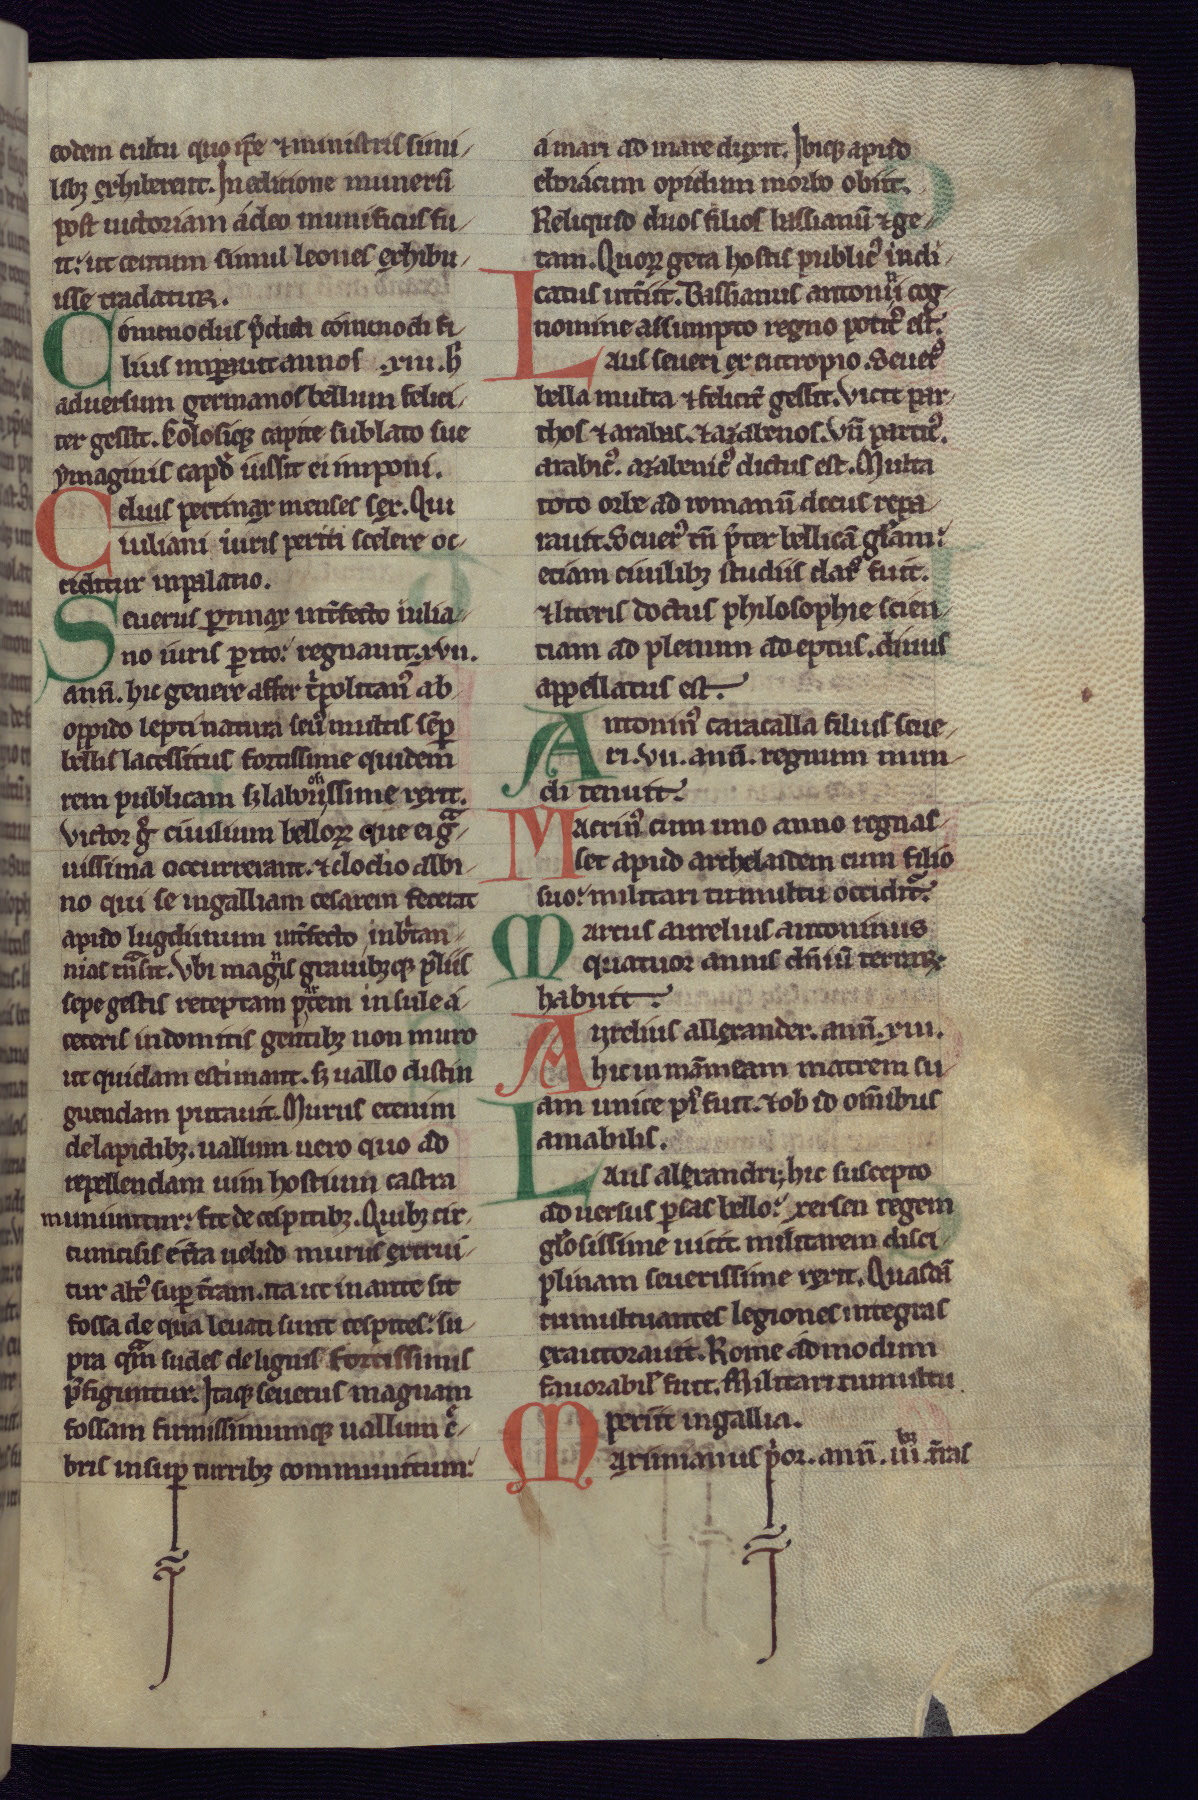 eodem cultu quo ip̄e ⁊ ministris simi/
libꝫ exhiberent. In editione munerū
post uictoriam adeo munificus fu/
it: ut centum simul leones exhibu/
isse tradatur.
Commodus p̄dicti cōmodi fi/
lius imꝑauit annos .xiii. h̄
aduersum germanos bellum felici/
ter gessit. Colosiqꝫ capite sublato sue
ymaginis capđ iussit ei imponi.
Celius pertinax menses sex. Qui
iuliani iuris periti scelere oc/
ciditur in palatio.
Seuerus ꝑtinax int̄fecto iulia/
no iuris ꝑito: regnauit .xvii.
ann̄. hic genere affer t̄politan᾽ ab
oppido lepti natura seu᾽ multis sēꝑ
bellis lacessitus fortissime quidem
rem publicam sꝫ laboriosissime rexit.
Victor g᾽ ciuilium belloꝝ que ei gra
uissima occurrerant. ⁊ clodio albi
no qui se in galliam cesarem fecerat
apud lugdunum int̄fecto in britan/
nias tn̄sit. Vbi magnis grauibꝫqꝫ p̄liis
sepe gestis receptam partem insule a
ceteris indomitis gentibꝫ non muro
ut quidam estimant. sꝫ uallo distin
guendam putauit. Murus etenim
de lapidibꝫ. uallum uero quo ad
repellendam uim hostium castra
muniuntur: fit de cespitibꝫ. Quibꝫ cir/
cumcisis e t̄ra uelud murus extrui/
tur alt᾽ suꝑ t̄ram. ita ut in ante sit
fossa de qua leuati sunt cespites: su/
pra quam sudes de lignis fortissimis
p̄figuntur. Itaqꝫ seuerus magnam
fossam firmissimumqꝫ uallum c̄/
bris insuꝑ turribꝫ communitum:
a mari ad mare duxit. Ibiqꝫ apud
eboracum opidum morbo obiit.
Reliquid duos filios bassianū ⁊ ge/
tam. Quoꝝ geta hostis public᾽ iudi/
catus int̄iit. Bassianus antonini cog/
nomine assumpto regno potit᾽ est.
Laus seueri ex eutropio. Seuer᾽
bella multa ⁊ felicit̄ gessit. Vicit par/
thos ⁊ arabas. ⁊ azabenos. Vn̄ partic᾽.
arabic᾽. azabenic᾽ dictus est. Multa
toto orbe ad romanū decus repa/
rauit. Seuer᾽ tn̄ p̄ter bellicā gl̄am:
etiam ciuilibꝫ studiis clar᾽ fuit.
⁊ litteris doctus philosophie scien/
tiam ad plenum ad eptus. diuus
appellatus est.
Antonin᾽ caracalla filius seue/
ri .vii. ann̄. regnum mun/
di tenuit.
Macrin᾽ cum uno anno regnas/
set apud archelaidem cum filio
suo: militari tumultu occidit᾽.
Marcus aurelius antoninus
quatuor annis dn̄iū terrarꝫ
habuit.
Ayrelius allexander. ann̄. xiii.
hic in māmeam matrem su/
am unice pi᾽ fuit. ⁊ ob id om̄ibus
amabilis.
Laus alexandri; hic suscepto
ad uersus ꝑsas bello: xersen regem
gl̄osissime uicit militarem disci/
plinam seuerissime rexit. Quasdā
tumultuantes legiones integras
exauctorauit. Rome admodum
fauorabilˀ fuit. Militari tumultu
periit in gallia.
Maximianus p̄or. ann̄. iii. bꝫ n̄ras